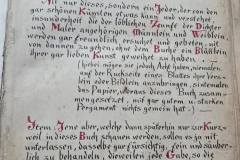 Nit nur dieses, sondern ein Jeder, der von den
gar schönen Künsten etwas kann und verstehet
insunderheit die der löblichen Zunfft der Dichter
und Maler angehörigen Männlein und Weiblein
werden gar freundlich ersuchet und gebeten, nit
von dannen zu gehen, ohne dem Buche ein Blättlein
Ihrer gar lieben Kunst geweihet zu haben.
(hierbei mögen sie jedoch Acht haben, niemalen
auf der Rückseite eines Blattes ihre Vers-
lein oder Bildlein anzubringen, sintemalen
das Papier, woraus dieses Buch zusam-
mengesetzet, nit gar gutem u. starken
Pergament nichts gemein hat.)
Item: Jene aber, welche dann späterhin nur zur Kurz-
weil in dieses Buch schauen werden, sollen es ja nit
unterlassen, dasselbe gar fürsichtig, fein und säuber-
lich zu behandeln, dieweilen jede Gabe, so die